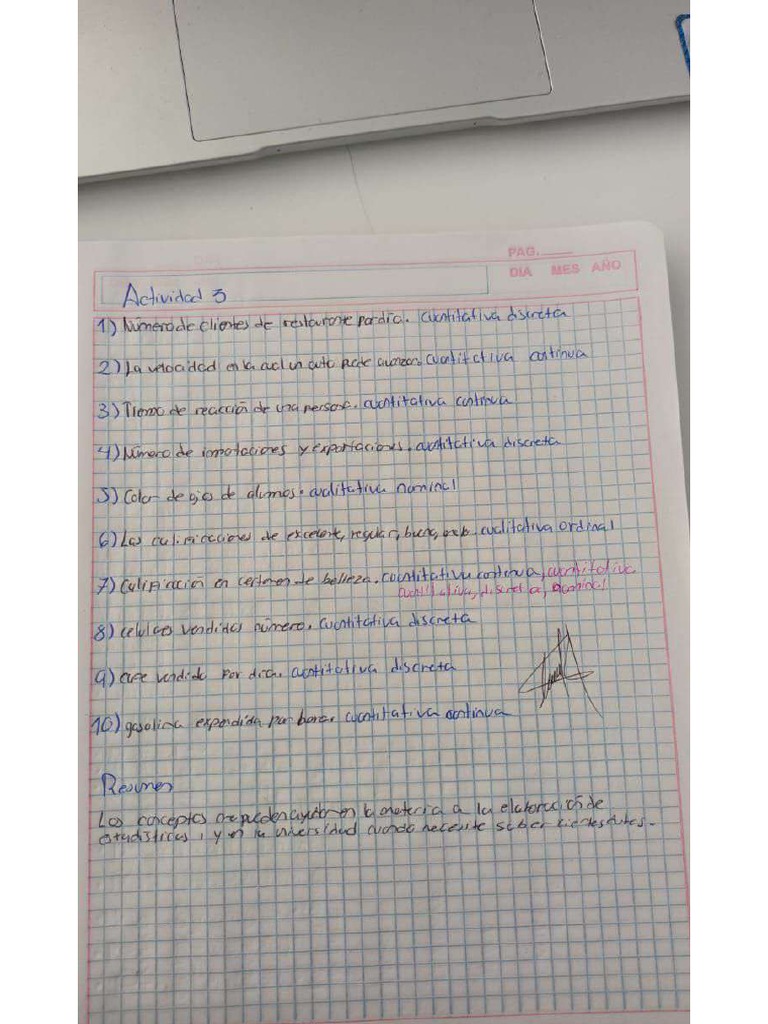 PAG.
DIA MES AÑO
Actividad 3
1) Número de clientes de restaurante por día. Cuantitativa discreta
2) La velocidad en la cual un auto puede avanzar. Cuantitativa continua
3) Tiempo de reacción de una persona. cuantitativa continua
4) Número de importaciones y exportaciones. cuantitativa discreta
5) Color de ojos de alumos. cualitativa nominal
6) Las calificaciones de excelente, regular, bueno, cualitativa ordinal
7) Calificación en certamen de belleza. cuantitativa continua, cuantitativa
cualitativa, discreta, nominal
8) celulares vendidos número. cuantitativa discreta
9) vendido por día. cuantitativa discreta
10) gasolina expendida por hora. cuantitativa continua
Resumen
Los conceptos me pueden ayudar en la materia a la elaboración de
estadísticas, y en la universidad cuando necesite saber